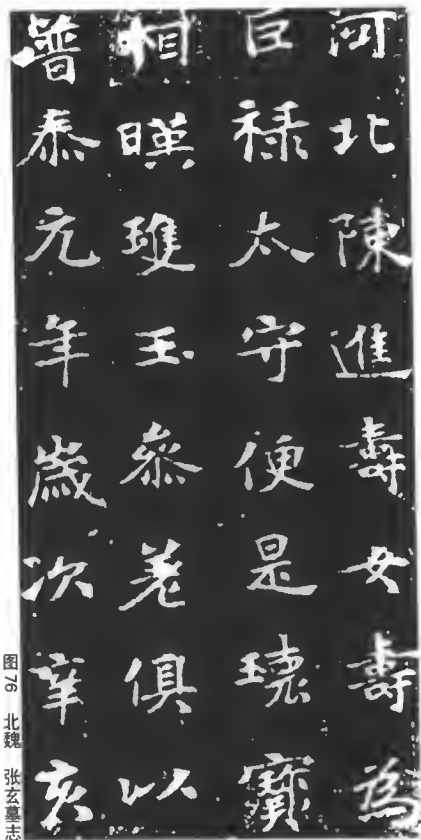 河北陳進壽女壽為
巨禄太守便是瓌寶
相暎瓊玉叅差俱以
普泰元年歲次辛亥
图76 北魏 张玄墓志